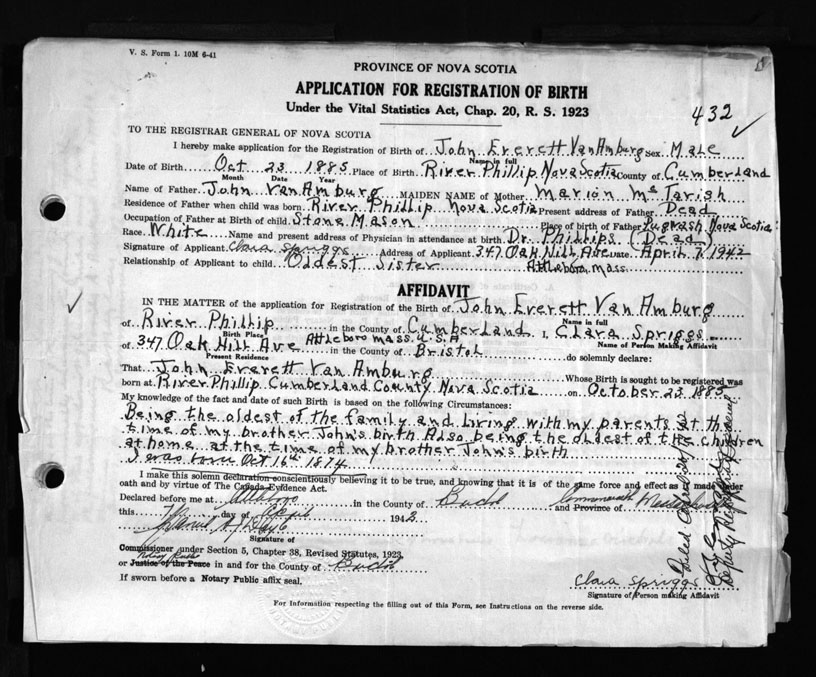 V. S. Form 1. 10M 6-41
PROVINCE OF NOVA SCOTIA
APPLICATION FOR REGISTRATION OF BIRTH
Under the Vital Statistics Act, Chap. 20, R. S. 1923
432 ✓
TO THE REGISTRAR GENERAL OF NOVA SCOTIA
I hereby make application for the Registration of Birth of John Everett VanAmburg Sex Male
Name in full
Date of Birth Oct 23 1885 Place of Birth River Phillip Nova Scotia County of Cumberland
Month Date Year
Name of Father John VanAmburg MAIDEN NAME of Mother Marion McTavish
Residence of Father when child was born River Phillip Nova Scotia Present address of Father Dead
Occupation of Father at Birth of child Stone Mason Place of birth of Father Pugwash Nova Scotia
Race White Name and present address of Physician in attendance at birth Dr Phillips (Dead)
Signature of Applicant Clara Spriggs Address of Applicant 347 Oak Hill Ave Date April 7, 1942
Relationship of Applicant to child Oldest Sister Attleboro Mass
AFFIDAVIT
✓ IN THE MATTER of the application for Registration of the Birth of John Everett Van Amburg
Name in full
of River Phillip in the County of Cumberland I, Clara Spriggs
Birth Place Name of Person Making Affidavit
of 347 Oak Hill Ave Attleboro Mass. U.S.A in the County of Bristol do solemnly declare:
Present Residence
That John Everett Van Amburg Whose Birth is sought to be registered was
born at River Phillip Cumberland County Nova Scotia on October 23, 1885
My knowledge of the fact and date of such Birth is based on the following Circumstances:
Being the oldest of the family and living with my parents at the
time of my brother John's birth Also being the oldest of the children
at home at the time of my brother John's birth
I was born Oct 16th 1874
I make this solemn declaration conscientiously believing it to be true, and knowing that it is of the same force and effect as if made under
oath and by virtue of The Canada Evidence Act.
Declared before me at Attleboro in the County of Bristol Commonwealth and Province of
this 7th day of April 1942
Signature of
Commissioner under Section 5, Chapter 38, Revised Statutes, 1923
Notary Public
or Justice of the Peace in and for the County of Bristol
If sworn before a Notary Public affix seal.
Clara Spriggs
Signature of Person making Affidavit
For Information respecting the filling out of this Form, see Instructions on the reverse side.
Deputy Registrar General